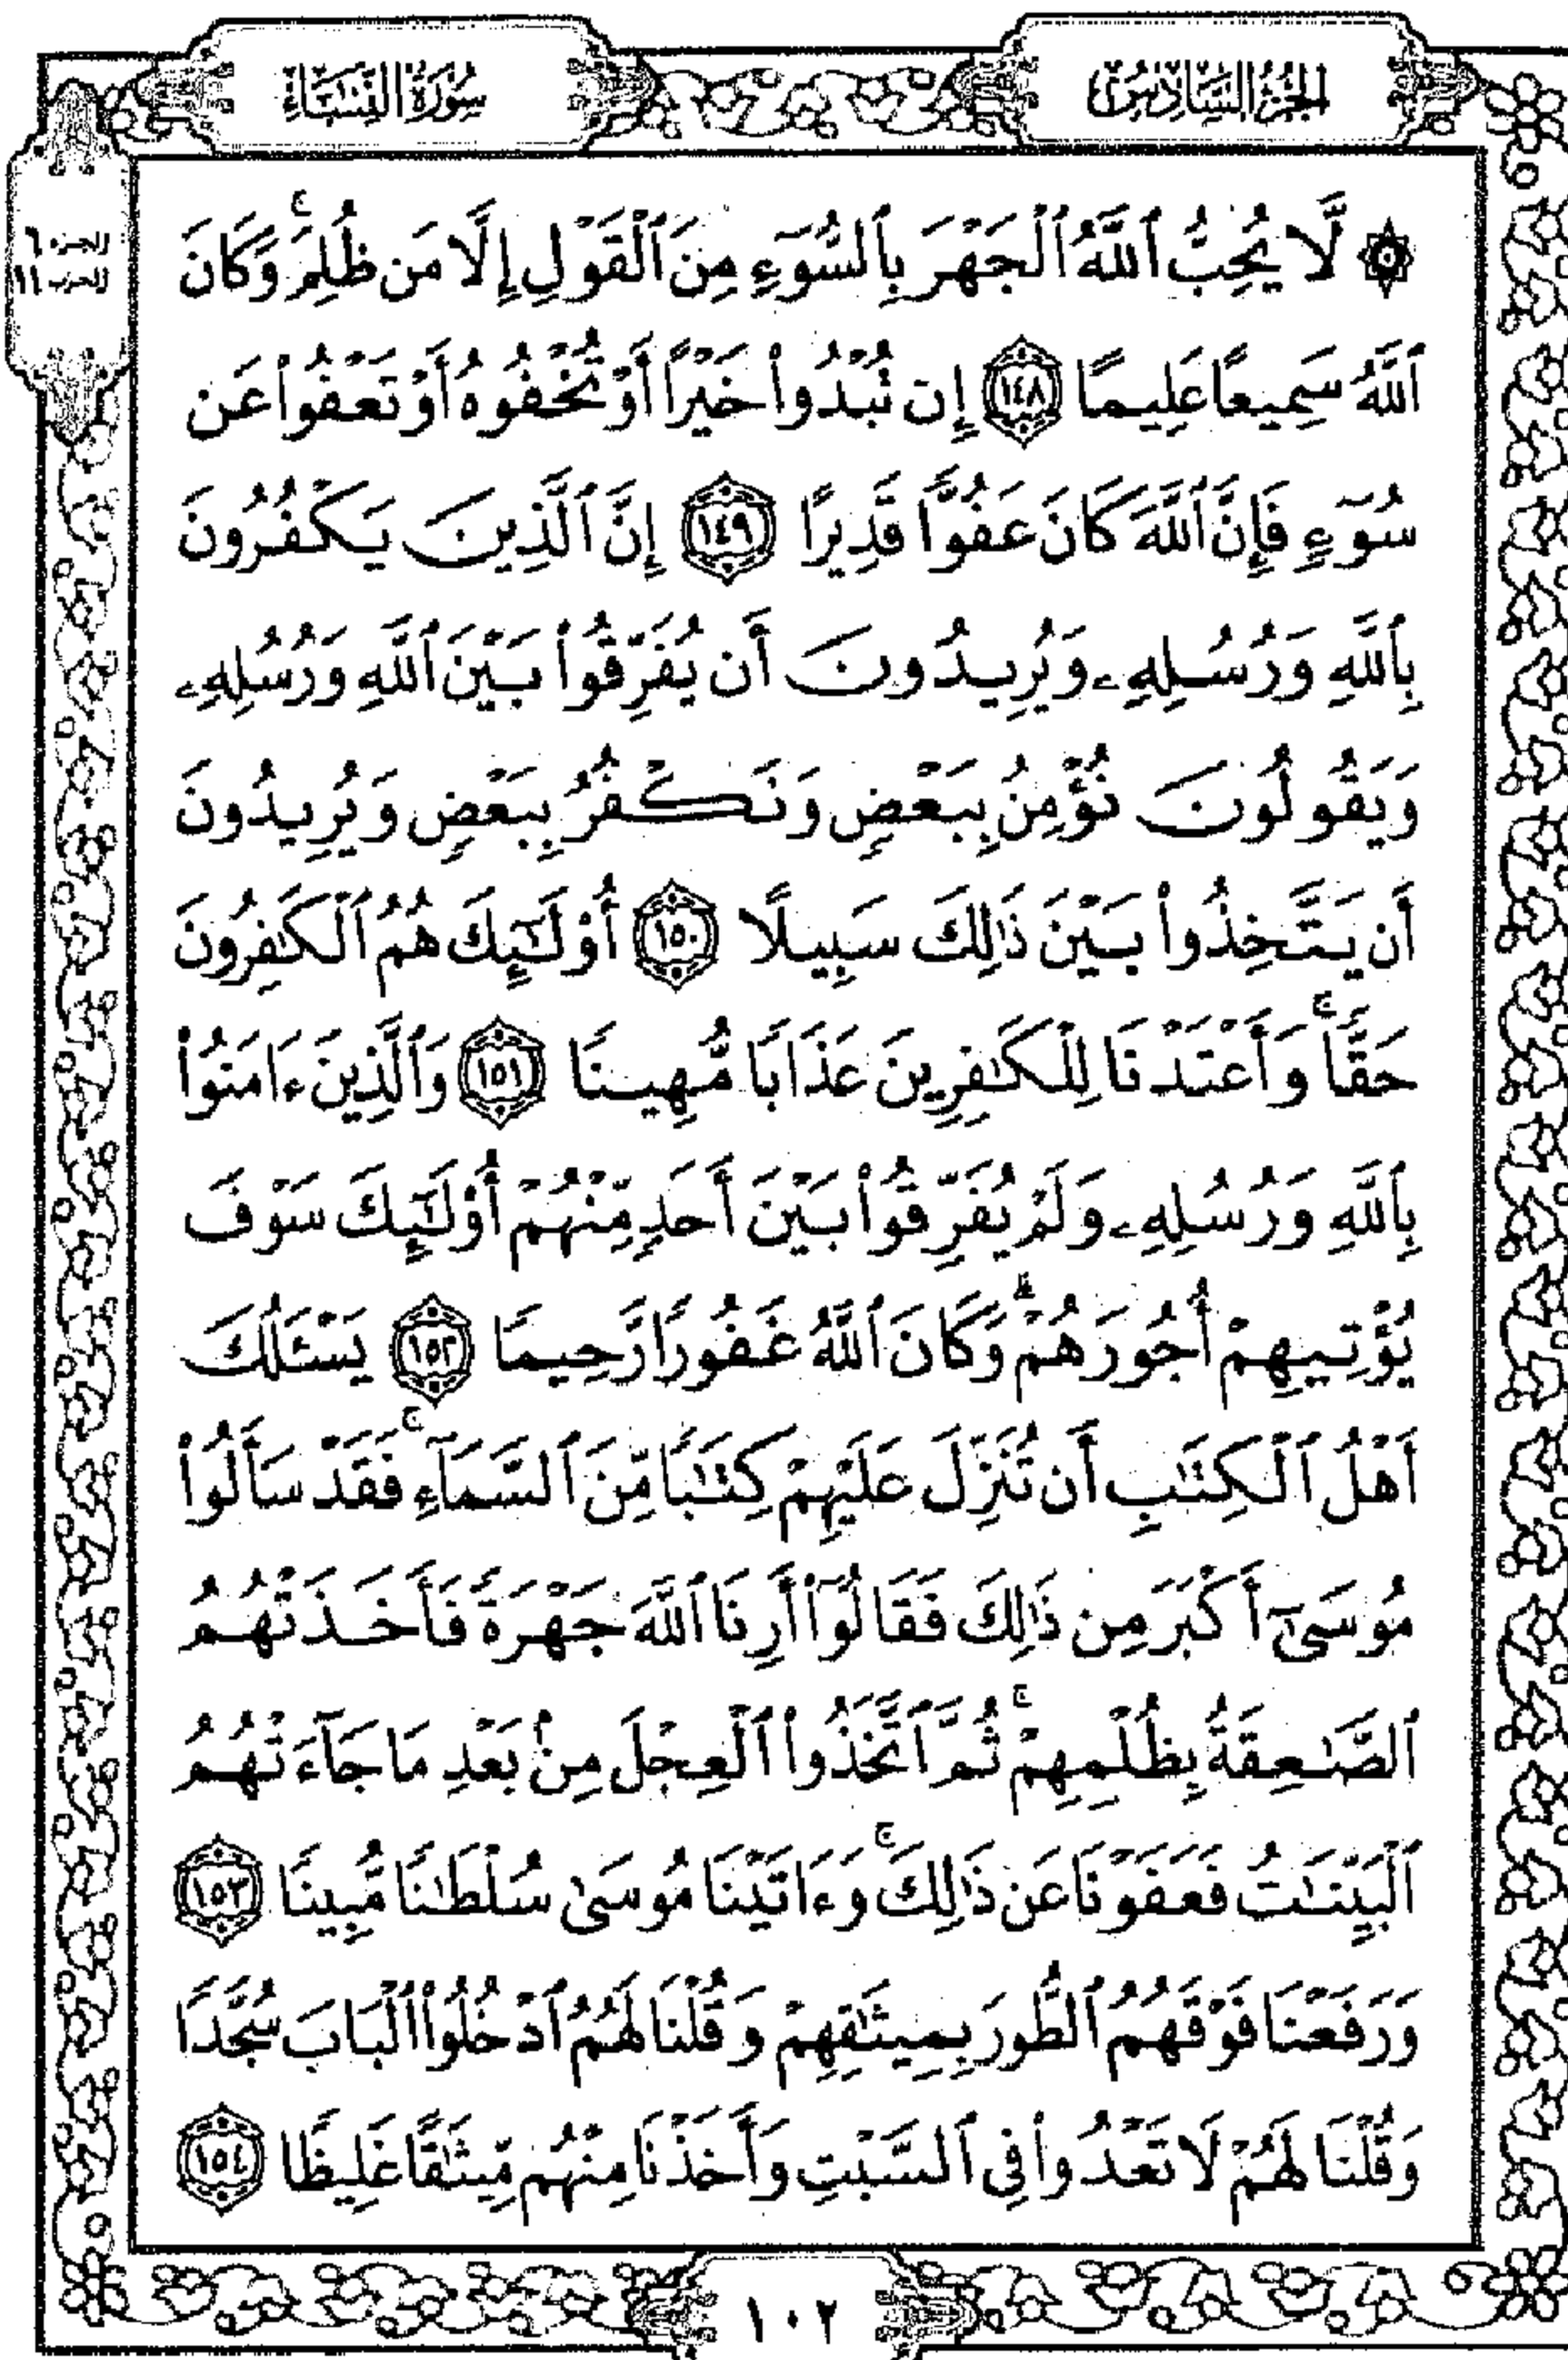 الجزء السادس
سورة النساء
الجزء ٦
الحزب ١١
۞ لَّا يُحِبُّ ٱللَّهُ ٱلْجَهْرَ بِٱلسُّوٓءِ مِنَ ٱلْقَوْلِ إِلَّا مَن ظُلِمَ ۚ وَكَانَ
ٱللَّهُ سَمِيعًا عَلِيمًا ١٤٨ إِن تُبْدُوا۟ خَيْرًا أَوْ تُخْفُوهُ أَوْ تَعْفُوا۟ عَن
سُوٓءٍ فَإِنَّ ٱللَّهَ كَانَ عَفُوًّا قَدِيرًا ١٤٩ إِنَّ ٱلَّذِينَ يَكْفُرُونَ
بِٱللَّهِ وَرُسُلِهِۦ وَيُرِيدُونَ أَن يُفَرِّقُوا۟ بَيْنَ ٱللَّهِ وَرُسُلِهِۦ
وَيَقُولُونَ نُؤْمِنُ بِبَعْضٍ وَنَكْفُرُ بِبَعْضٍ وَيُرِيدُونَ
أَن يَتَّخِذُوا۟ بَيْنَ ذَٰلِكَ سَبِيلًا ١٥٠ أُو۟لَٰٓئِكَ هُمُ ٱلْكَٰفِرُونَ
حَقًّا ۚ وَأَعْتَدْنَا لِلْكَٰفِرِينَ عَذَابًا مُّهِينًا ١٥١ وَٱلَّذِينَ ءَامَنُوا۟
بِٱللَّهِ وَرُسُلِهِۦ وَلَمْ يُفَرِّقُوا۟ بَيْنَ أَحَدٍ مِّنْهُمْ أُو۟لَٰٓئِكَ سَوْفَ
يُؤْتِيهِمْ أُجُورَهُمْ ۗ وَكَانَ ٱللَّهُ غَفُورًا رَّحِيمًا ١٥٢ يَسْـَٔلُكَ
أَهْلُ ٱلْكِتَٰبِ أَن تُنَزِّلَ عَلَيْهِمْ كِتَٰبًا مِّنَ ٱلسَّمَآءِ ۚ فَقَدْ سَأَلُوا۟
مُوسَىٰٓ أَكْبَرَ مِن ذَٰلِكَ فَقَالُوٓا۟ أَرِنَا ٱللَّهَ جَهْرَةً فَأَخَذَتْهُمُ
ٱلصَّٰعِقَةُ بِظُلْمِهِمْ ۚ ثُمَّ ٱتَّخَذُوا۟ ٱلْعِجْلَ مِنۢ بَعْدِ مَا جَآءَتْهُمُ
ٱلْبَيِّنَٰتُ فَعَفَوْنَا عَن ذَٰلِكَ ۚ وَءَاتَيْنَا مُوسَىٰ سُلْطَٰنًا مُّبِينًا ١٥٣
وَرَفَعْنَا فَوْقَهُمُ ٱلطُّورَ بِمِيثَٰقِهِمْ وَقُلْنَا لَهُمُ ٱدْخُلُوا۟ ٱلْبَابَ سُجَّدًا
وَقُلْنَا لَهُمْ لَا تَعْدُوا۟ فِى ٱلسَّبْتِ وَأَخَذْنَا مِنْهُم مِّيثَٰقًا غَلِيظًا ١٥٤
١٠٢